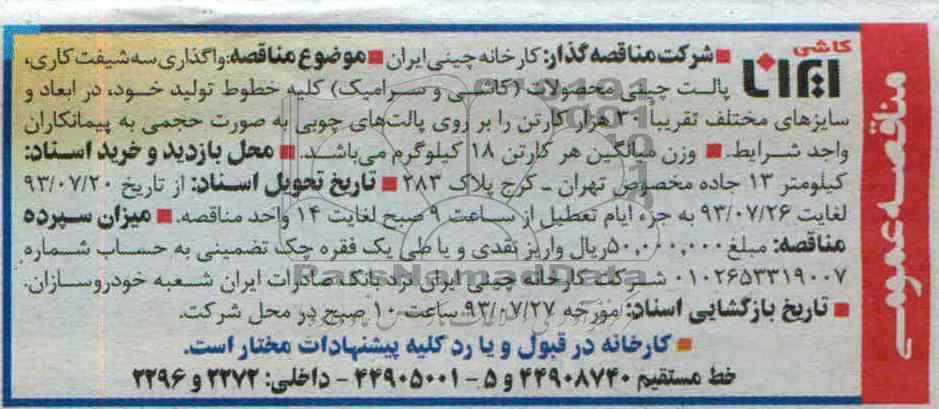 مناقصه عمومی
کاشی ایرانا
■ شرکت مناقصه گذار: کارخانه چینی ایران ■ موضوع مناقصه: واگذاری سه شیفت کاری،
پالت چینی محصولات (کاشی و سرامیک) کلیه خطوط تولید خود، در ابعاد و
سایزهای مختلف تقریباً ۳۰ هزار کارتن را بر روی پالت‌های چوبی به صورت حجمی به پیمانکاران
واجد شرایط. ■ وزن میانگین هر کارتن ۱۸ کیلوگرم می‌باشد. ■ محل بازدید و خرید اسناد:
کیلومتر ۱۳ جاده مخصوص تهران ـ کرج پلاک ۲۸۳ ■ تاریخ تحویل اسناد: از تاریخ ۹۳/۰۷/۲۰
لغایت ۹۳/۰۷/۲۶ به جزء ایام تعطیل از ساعت ۹ صبح لغایت ۱۴ واحد مناقصه. ■ میزان سپرده
مناقصه: مبلغ ۵۰,۰۰۰,۰۰۰ ریال واریز نقدی و یا طی یک فقره چک تضمینی به حساب شماره
۰۱۰۲۶۵۳۳۱۹۰۰۷ شرکت کارخانه چینی ایران نزد بانک صادرات ایران شعبه خودروسازان.
■ تاریخ بازگشایی اسناد: مورخه ۹۳/۰۷/۲۷ ساعت ۱۰ صبح در محل شرکت.
■ کارخانه در قبول و یا رد کلیه پیشنهادات مختار است.
خط مستقیم ۴۴۹۰۸۷۴۰ و ۵ - ۴۴۹۰۵۰۰۱ - داخلی: ۲۲۷۲ و ۲۲۹۶
ParsNamadData